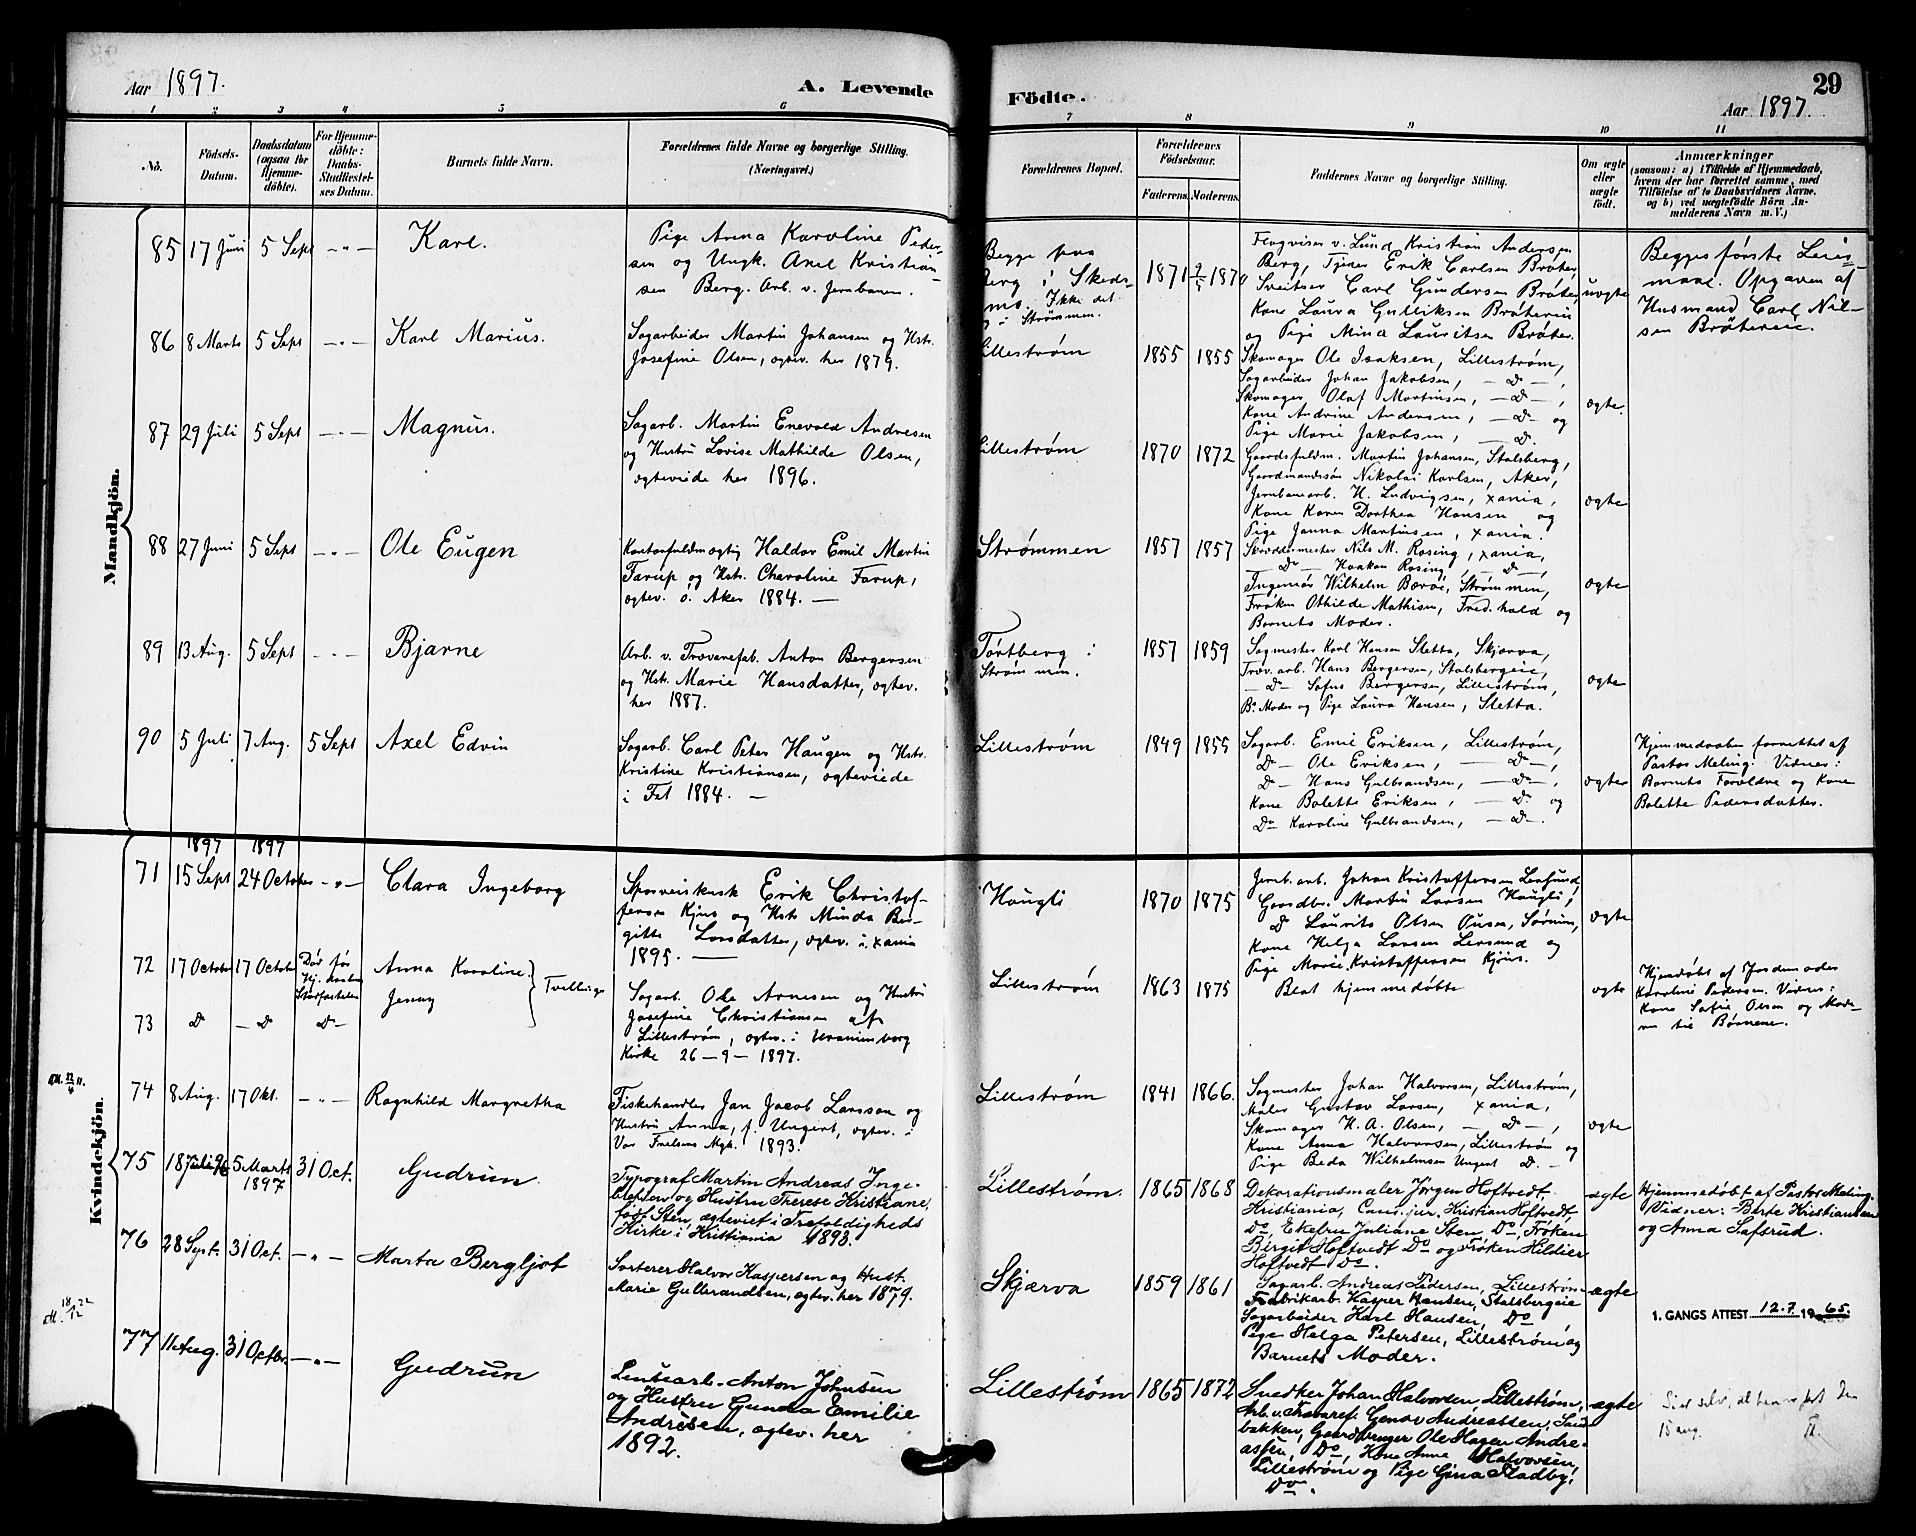 Aar 1897.
A. Levende Födte.
29
Aar 1897.
1 2 3 4 5 6 7 8 9 10 11
No.
Födsels-Datum.
Daabsdatum (ogsaa for Hjemmedöbte).
For Hjemmedöbte: Daabs-Stadfæstelses Datum.
Barnets fulde Navn.
Forældrenes fulde Navne og borgerlige Stilling. (Næringsvei.)
Forældrenes Bopæl.
Forældrenes Födselsaar.
Faderens. Moderens.
Faddernes Navne og borgerlige Stilling.
Om ægte eller uægte födt.
Anmærkninger
(saasom: a) i Tilfælde af Hjemmedaab, hvem der har forrettet samme, med Tilföielse af to Daabsvidners Navne, og b) ved uægtefödte Börn Anmelderens Navn m. V.)
Mandkjön.
85 17 Juni 5 Sept - " - Karl.
Pige Anna Karoline Peder-
sen og Ungk. Axel Kristian-
sen Berg. Arb. v. Jernbanen.
Begge paa
Berg i Skeds-
mo. Ikke det
i Strømmen.
1871 2/5 1870
v. Lund, Kristian Andersen
Berg, Tjener Erik Carlsen Brøter,
Sveitser Carl Gundersen Brøter,
Kone Laura Gulliksen Brøtereie
og Pige Mina Lauritsen Brøter.
uægte
Begges første Leier-
maal. Opgaven af
Husmand Carl Nil-
sen Brøtereie.
86 8 Marts 5 Sept - " - Karl Marius.
Sagarbeider Martin Johansen og Hstr.
Josefine Olsen, ægtev. her 1879.
Lillestrøm 1855 1855
Skomager Ole Isaksen, Lillestrøm,
Sagarbeider Johan Jakobsen, - D -,
Skomager Olaf Martinsen, - D -,
Kone Andrine Andersen, - D - og
Pige Marie Jakobsen, - D.
ægte.
87 29 Juli 5 Sept - " - Magnus.
Sagarb. Martin Enevald Andresen
og Hustru Lovise Mathilde Olsen,
ægteviede her 1896.
Lillestrøm 1870 1872
Gaardsfuldm. Martin Johansen, Stalsberg,
Gaardmandssøn Nikolai Karlsen, Aker,
Jernbanearb. H. Ludvigsen, Xania,
Kone Karen Dorthea Hansen og
Pige Janna Martinsen, Xania.
ægte
88 27 Juni 5 Sept - " - Ole Eugen
Kontorfuldmægtig Haldor Emil Martin
Farup og Hstr. Charoline Farup,
ægtev. i Aker 1884. -
Strømmen 1857 1857
Skræddermester Nils M. Rosing, Xania,
- Do - Haakon Rosing, - D -,
Ingeniør Wilhelm Børøe, Strømmen,
Frøken Othilde Mathisen, Fred.hald og
Barnets Moder.
ægte
89 13 Aug. 5 Sept - " - Bjarne
Arb. v. Trævarefab. Anton Bergersen
og Hstr. Marie Hansdatter, ægtev.
her 1887.
Tørtberg i
Strømmen.
1857 1859
Sagmester Karl Hansen Sletta, Skjærva,
Træv. arb. Hans Bergersen, Stalsbergeie,
- D - Sofus Bergersen, Lillestrøm,
B. Moder og Pige Laura Hansen, Sletta.
ægte
90 5 Juli 7 Aug. 5 Sept Axel Edvin
Sagarb. Carl Peter Haugen og Hstr.
Kristine Kristiansen, ægteviede
i Fet 1884. -
Lillestrøm 1849 1855
Sagarb. Emil Eriksen, Lillestrøm,
D - Ole Eriksen, - D -,
D - Hans Gulbrandsen, - D -,
Kone Bolette Eriksen, - D. og
Do Karoline Gulbrandsen, - D -.
ægte
Hjemmedaaben forrettet af
Pastor Meling. Vidner:
Barnets Forældre og Kone
Bolette Pedersdatter.
Kvindekjön.
1897 1897
71 15 Sept 24 October - " - Clara Ingeborg
Sporveiskusk Erik Christof-
fersen Kjus og Hstr. Minda Ber-
gitte Larsdatter, ægtev. i Xania
1895. -
Haugli 1870 1875
Jernb. arb. Johan Kristoffersen Lersund,
Gaardbr. Martin Larsen Haugli,
D Laurits Olsen Ousen, Sørum,
Kone Helga Larsen Lersund og
Pige Marie Kristoffersen Kjus.
ægte
72 17 October 17 October Død før Hj. daabens Stadfæstelse Anna Karoline } Tvillinger
73 D - D D - Jenny
Sagarb. Ole Arnesen og Hustru
Josefine Christiansen af
Lillestrøm, ægtev. i Uranienborg
Kirke 26-9-1897.
Lillestrøm 1863 1875
Blot hjemmedøbte
ægte
Hjemdøbt af Jordemoder
Karoline Pedersen. Vidner:
Kone Sofie Olsen og Mode-
ren til Børnene.
74 8 Aug. 17 Okt. - " - Ragnhild Margretha
Fiskehandler Jan Jacob Larsson og
Hustru Anna, f. Ungert, ægtev. i
Vor Frelsers Mgh. 1893.
Lillestrøm 1841 1866.
Sagmester Johan Halvorsen, Lillestrøm,
Maler Gustav Larsen, Xania,
Skomager H. A. Olsen, - D -,
Kone Anna Halvorsen, Lillestrøm og
Pige Beda Wilhelmsen Ungert D. -
ægte
75 18 Juli 96 5 Marts 1897 31 Oct. Gudrun.
Typograf Martin Andreas Inge-
bretsen og Hustru Therese Kristiane,
født Sten, ægteviet i Trefoldigheds
Kirke i Kristiania 1893.
Lillestrøm. 1865 1868
Dekorationsmaler Jørgen Hoftvedt,
Kristiania, Cand. jur. Kristian Hoftvedt,
Do, Enkefru Juliane Sten, Do, Frøken
Bergit Hoftvedt Do og Frøken Hildier
Hoftvedt Do.
ægte
Hjemmedøbt af Pastor Meling.
Vidner: Berte Kristiansen
og Anna Safsrud.
76 28 Sept. 31 Oct. - " - Marta Bergljot
Sorterer Halvor Kaspersen og Hust.
Marie Gulbrandsen, ægtev. her 1879.
Skjærva 1859 1861
Sagarb. Andreas Pedersen, Lillestrøm
Fabrikarb. Kasper Hansen, Stalsbergeie
Sagarbeider Karl Hansen, Do
Pige Helga Petersen, Lillestrøm og
Barnets Moder.
ægte
1. GANGS ATTEST 12.7. 1965.
77 11 Aug. 31 Octbr. - " - Gudrun
Anton Johnsen
og Hustru Gunda Emilie
Andresen, ægtev. her
1892.
Lillestrøm 1865 1872
Snedker Johan Halvorsen, Lillestrøm,
Arb. v. Travaref. Genov Andreassen, Sand-
bakken, Gaardbruger Ole Hagen Andre-
assen, Do, Kone Anna Halvorsen,
Lillestrøm og Pige Gina Stadby,
Do.
ægte
15 aug.